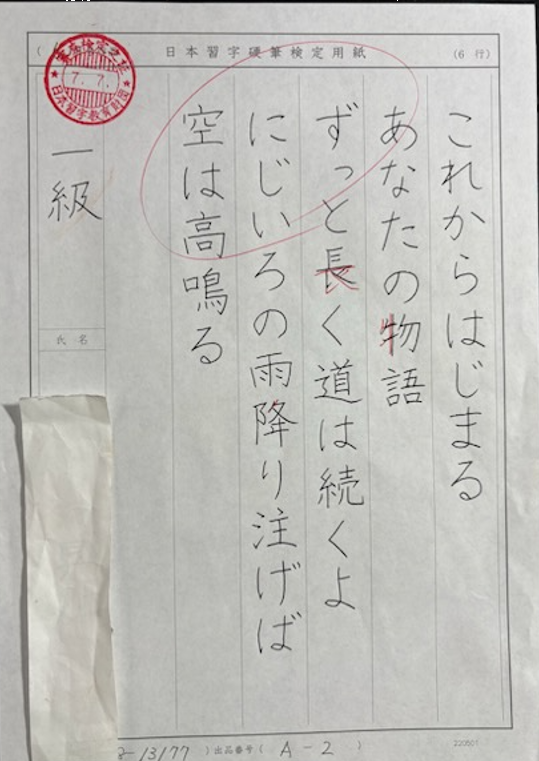 日本習字硬筆検定用紙
(6 行)
これからはじまる
あなたの物語
ずっと長く道は続くよ
にじいろの雨降り注げば
空は高鳴る
一級
氏名
7. 7.
日本習字教育財団
13177 )出品番号( A-2 )
220501